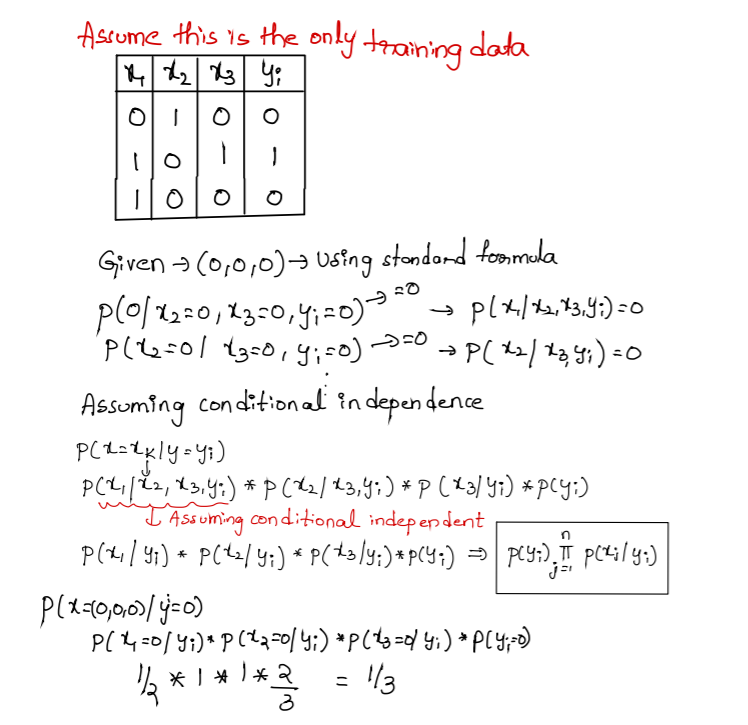 Assume this is the only training data
x₁ x₂ x₃ yᵢ
0 1 0 0
1 0 1 1
1 0 0 0
Given → (0,0,0) → Using standard formula
P(0/x₂=0, x₃=0, yᵢ=0) → =0 → P(x₁/x₂,x₃,yᵢ)=0
P(x₂=0/ x₃=0, yᵢ=0) → =0 → P(x₂/x₃,yᵢ)=0
Assuming conditional independence
P(x=xₖ/y=yᵢ)
P(x₁/x₂,x₃,yᵢ) * P(x₂/x₃,yᵢ) * P(x₃/yᵢ) * P(yᵢ)
↓ Assuming conditional independent
P(x₁/yᵢ) * P(x₂/yᵢ) * P(x₃/yᵢ) * P(yᵢ) ⇒ P(yᵢ) n π j=1 P(xⱼ/yᵢ)
P(x=(0,0,0)/y=0)
P(x₁=0/yᵢ) * P(x₂=0/yᵢ) * P(x₃=0/yᵢ) * P(yᵢ=0)
1/2 * 1 * 1 * 2/3 = 1/3